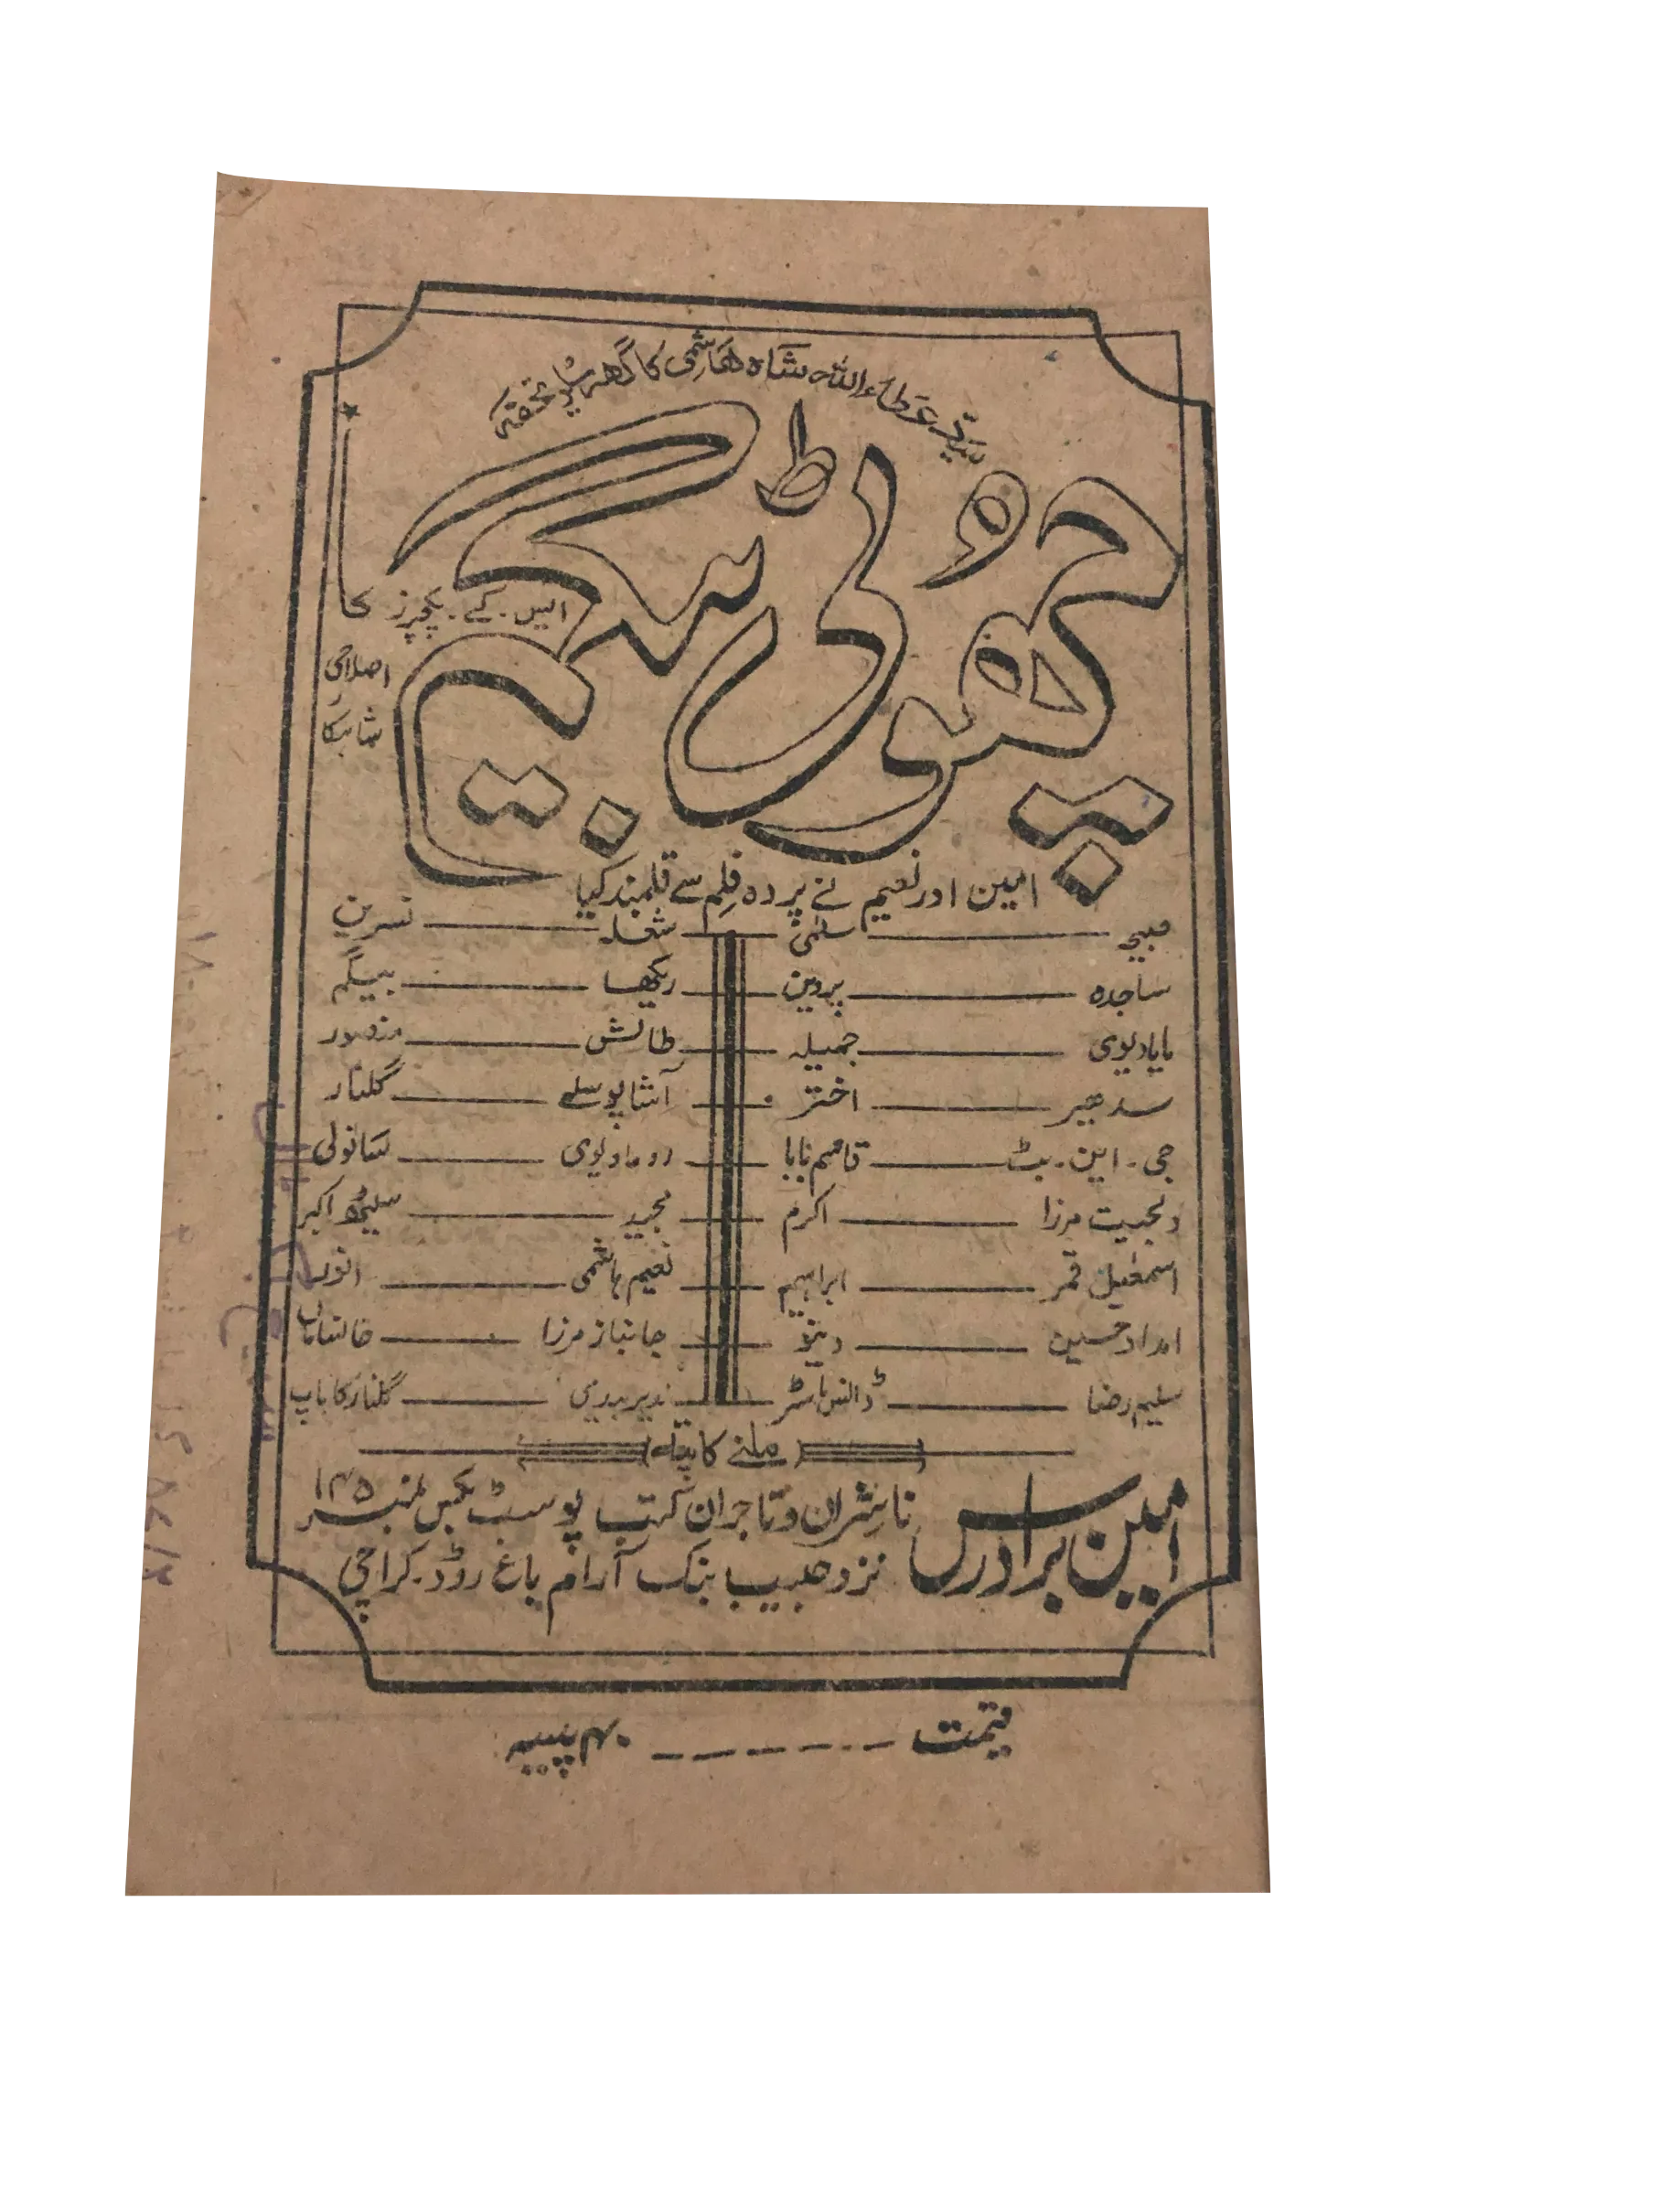 سید عطاء اللہ شاہ ھاشمی کا گھریلو تحفہ
چھوٹی بیگم
ایس . کے . پکچرز کا
اصلاحی
شاہکار
امین اور نعیم نے پردہ فلم سے قلمبند کیا
صبیحہ — سلمیٰ شعلہ — نسرین
ساجدہ — پروین ریکھا — بیگم
مایا دیوی — جمیلہ طالش — منصور
سدھیر — اختر آشا پوسلے — گلنار
جی . این . بٹ — قاسم بابا رومادیوی — سانولی
دلجیت مرزا — اکرم مجید — سیٹھ اکبر
اسمعیل قمر — ابراہیم نعیم ہاشمی — انور
امداد حسین — دینو جانباز مرزا — خانساماں
سلیم رضا — ڈانس ماسٹر نذیر بیدی — گلنار کا باپ
ملنے کا پتہ
امین برادرس ناشران و تاجران کتب پوسٹ بکس نمبر ۱۴۵
نزد حبیب بنک آرام باغ روڈ . کراچی
قیمت ------ ۴۰ پیسہ